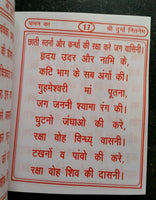 चमन का 17 श्री दुर्गा नित्यनेम
छाती स्तनों और कन्धों की रक्षा करे जग वासिनी।
हृदय उदर और नाभि के,
कटि भाग के सब अंगों की।
गुहमेश्वरी मां पूतना,
जग जननी श्यामा रंग की।
घुटनो जंघाओ की करे,
रक्षा वोह विन्ध्य वासनी।
टखनों व पांवो की करे,
रक्षा वोह शिव की दासनी।